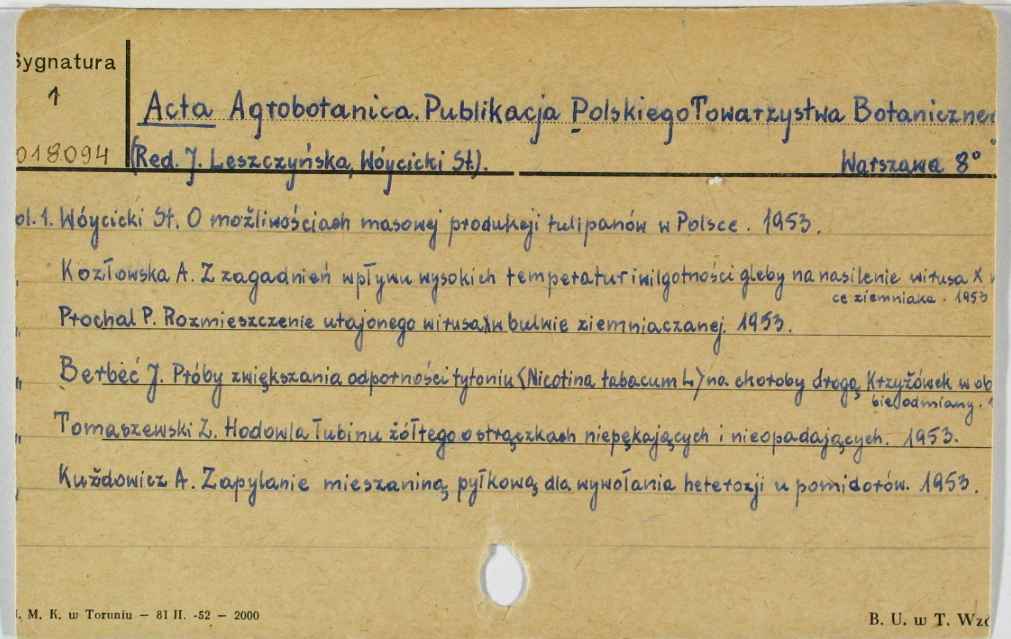 Sygnatura
1
Acta Agrobotanica. Publikacja Polskiego Towarzystwa Botaniczne
018094 (Red. J. Leszczyńska, Wóycicki St.). Warszawa 8°
ol. 1. Wóycicki St. O możliwościach masowej produkcji tulipanów w Polsce. 1953.
" Kozłowska A. Z zagadnień wpływu wysokich temperatur i wilgotności gleby na nasilenie wirusa X
ce ziemniaka. 1953
Prochal P. Rozmieszczenie utajonego wirusa X w bulwie ziemniaczanej. 1953.
" Berbeć J. Próby zwiększania odporności tytoniu (Nicotina tabacum L) na choroby drogą Krzyżówek w ob
bie odmiany.
" Tomaszewski Z. Hodowla łubinu żółtego o strączkach niepękających i nieopadających. 1953.
" Kużdowicz A. Zapylanie mieszaniną pyłkową dla wywołania heterozji u pomidorów. 1953.
. M. K. w Toruniu — 81 II. -52 — 2000
B. U. w T. Wzó